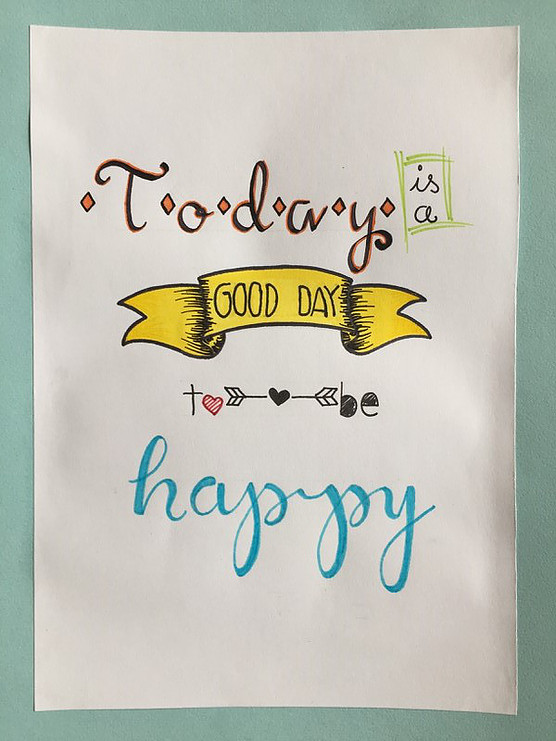 Today is a
GOOD DAY
to be
happy